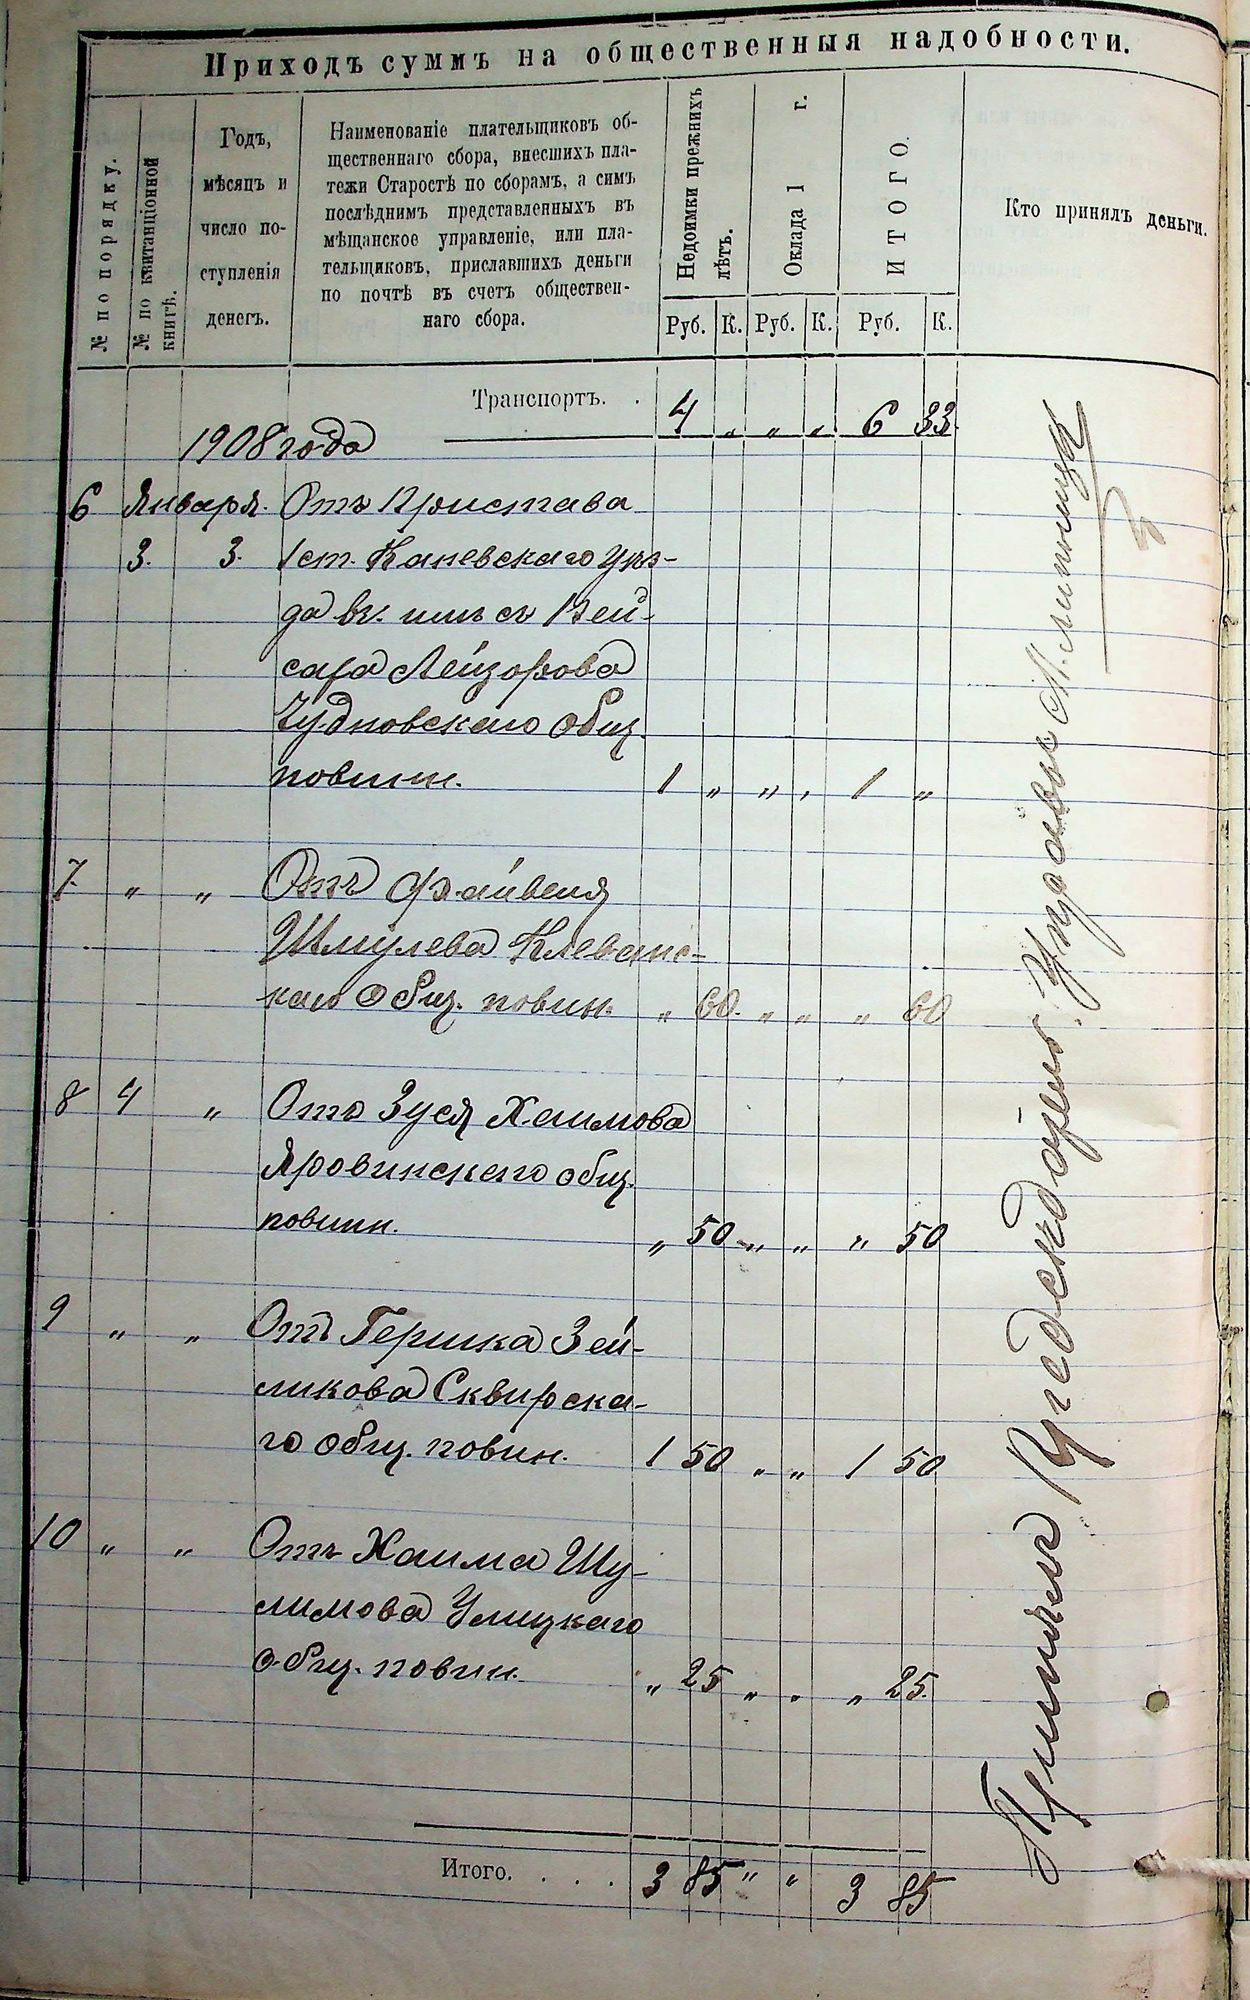 Приходъ суммъ на общественныя надобности.
№ по порядку.
№ по квитанціонной
книгѣ.
Годъ,
мѣсяцъ и
число по-
ступленія
денегъ.
Наименованіе плательщиковъ об-
щественнаго сбора, внесшихъ пла-
тежи Старостѣ по сборамъ, а симъ
послѣднимъ представленныхъ въ
мѣщанское управленіе, или пла-
тельщиковъ, приславшихъ деньги
по почтѣ въ счетъ обществен-
наго сбора.
Недоимки прежнихъ
лѣтъ.
Оклада 1 г.
ИТОГО.
Кто принялъ деньги.
Руб. К. Руб. К. Руб. К.
Транспортъ. . 4 „ „ „ 6 33.
1908 года
6 Января. Отъ Пристава
3. 3. 1 ст. Каневскаго уѣз-
да
сара Лейзорова
Чудновскаго общ.
повинн. 1 „ „ „ 1 „
7. „ „ Отъ Файвеля
Шмулева Клеванс-
каго общ. повин. „ 60. „ „ „ 60
8 4 „ Отъ Зуся Хаимова
Яровинскаго общ.
повинн. „ 50 „ „ „ 50
9 „ „ Отъ Гершка Зей-
ликова Сквирска-
го общ. повин. 1 50 „ „ 1 50
10 „ „ Отъ Хаима Шу-
лимова Улицкаго
общ. повин. „ 25 „ „ „ 25.
Итого. . . . 3 85 „ „ 3 85
Принялъ Предсѣдатель Управы М. Липницкій